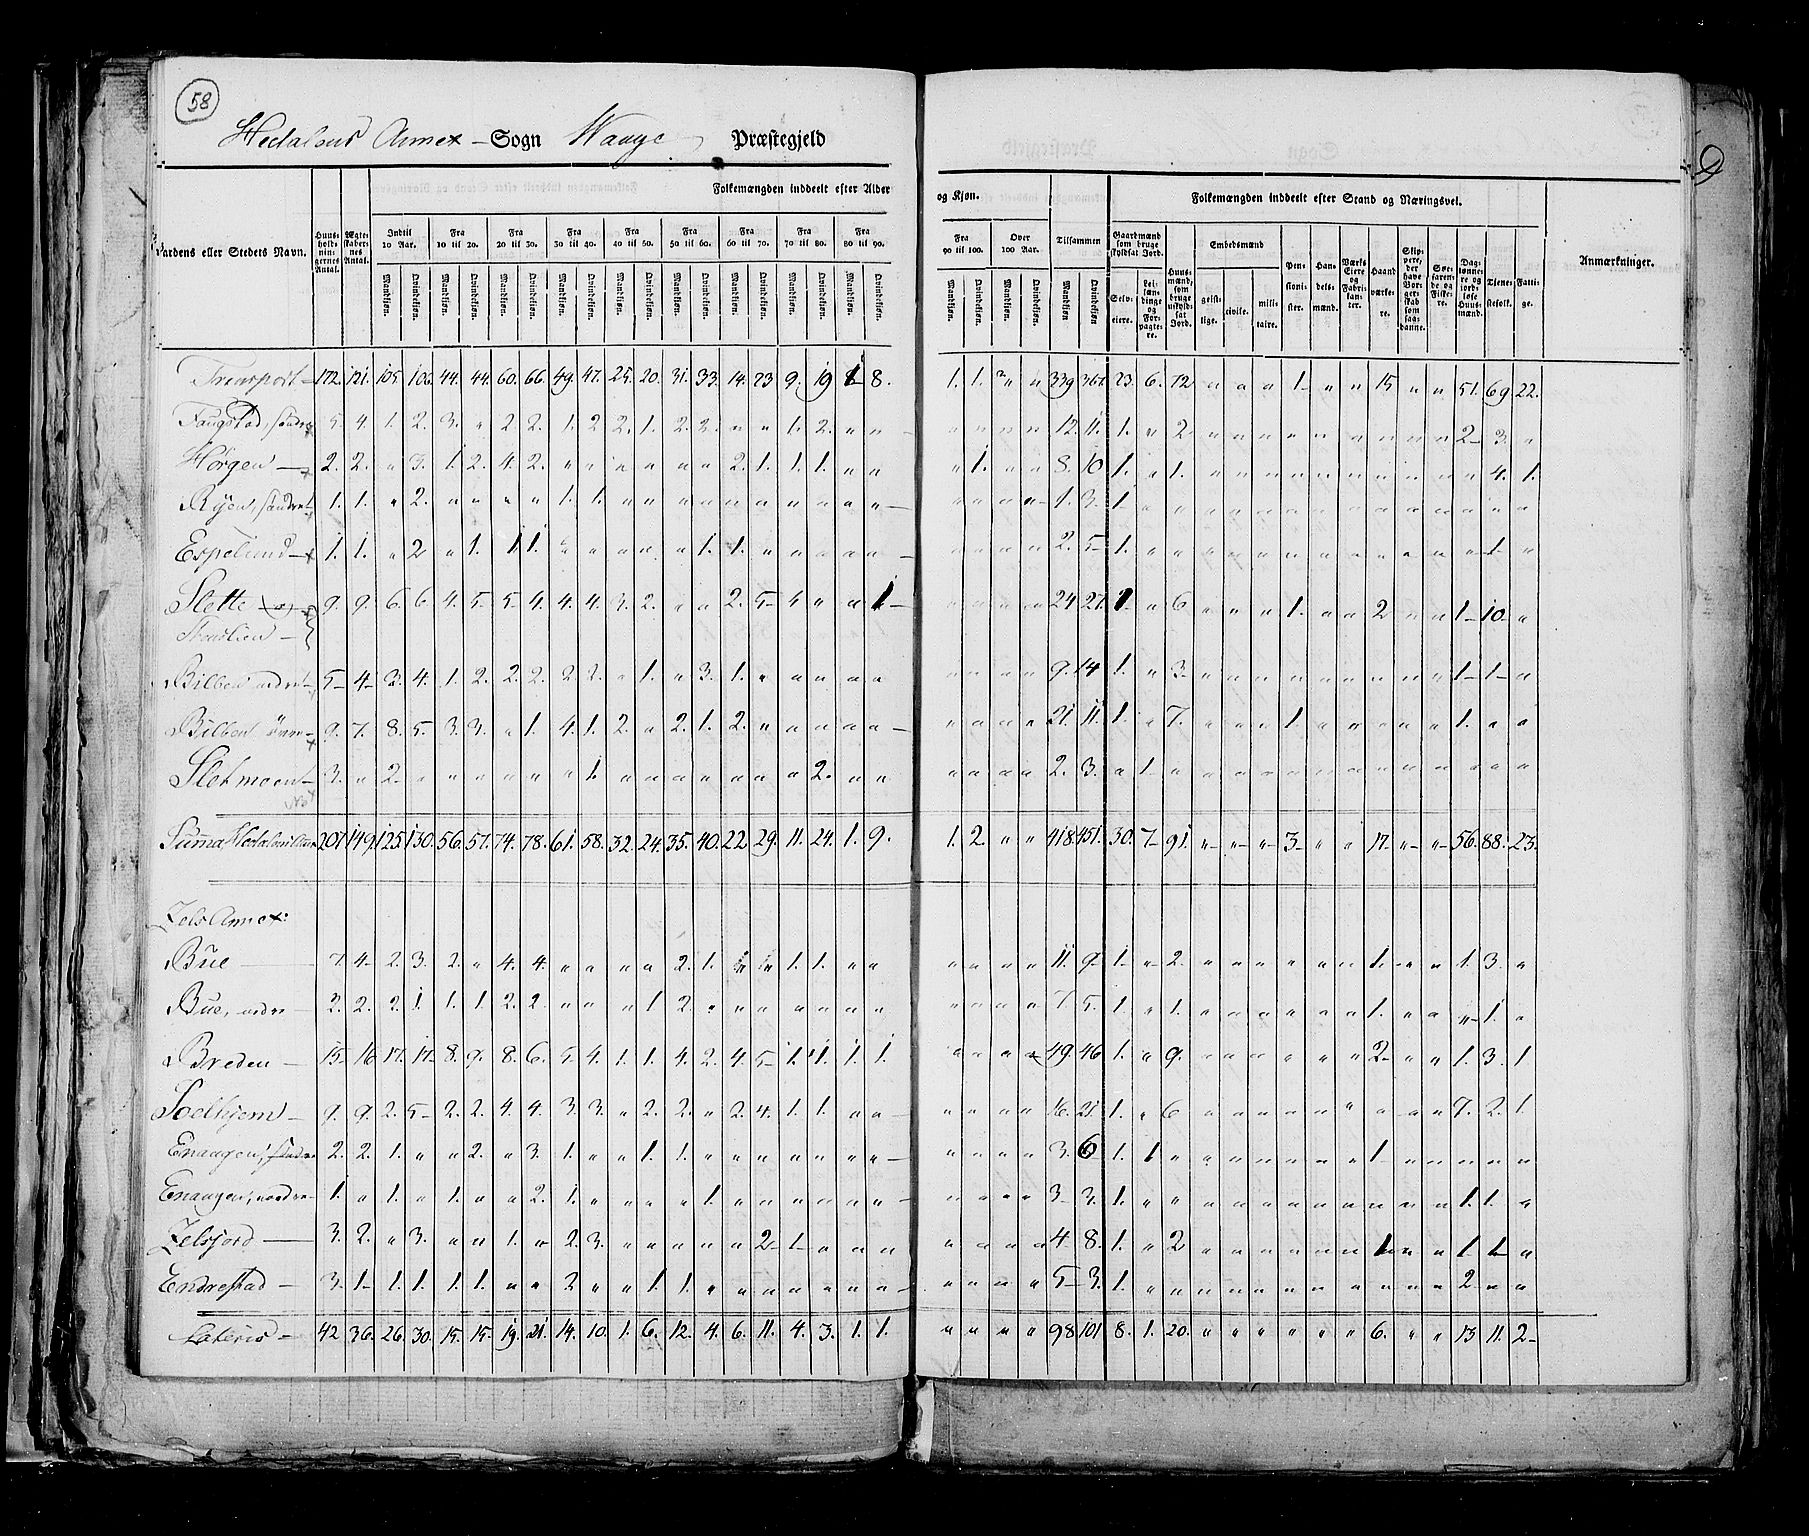 58
Hedalens Annex – Sogn Wange Præstegjeld
Gaardens eller Stedets Navn. Huusholdningernes Antal. Ægteskabernes Antal. Folkemængden inddeelt efter Alder og Kjøn. Tilsammen Folkemængden inddeelt efter Stand og Næringsvei. Anmærkninger.
Indtil 10 Aar. Fra 10 til 20. Fra 20 til 30. Fra 30 til 40. Fra 40 til 50. Fra 50 til 60. Fra 60 til 70. Fra 70 til 80. Fra 80 til 90. Fra 90 til 100. Over 100 Aar.
Mandkjøn. Qvindekjøn.
Gaardmænd som bruge skyldsat Jord. Selveiere. Leilændinge og Forpagtere. Huusmænd, som bruge uskyldsat Jord. Embedsmænd geistlige. civile. militaire. Pensionister. Handelsmænd. Værks Eiere og Fabrikanter. Haandværkere. Skippere, der have Borgerskab som saadanne. Søefarende og Fiskere. Daglønnere og jordløse Huusmænd. Tjenestefolk. Fattige.
Transport – 172. 121. 105. 106. 44. 44. 60. 66. 49. 47. 25. 20. 31. 33. 14. 23 9. 19 1 8. 1. 1. " " 339 367. 23. 6. 72 " " " 1 " " 15 " " 51. 69 22.
Faugstad, søndre 5. 4. 1. 2. 3. " 2 2. 1. 2 2. 1. 2. 2. " " 1. 2. " " " " " " 12. 11. 1. " 2 " " " " " " " " " 2 3. "
Hørgen 2. 2. " 3. 1. 2. 4. 2. " " " " " " 2. 1. 1. 1. " " " 1. " " 8. 10 1. " 1. " " " " " " " " " " 4. 1.
Ryen, søndre 1. 1. " 2. " " " " 1. 1. " " " " " " " " " " " " " " 1. 3. 1 " " " " " " " " " " " " " "
Espelund 1. 1. " 2 " 1. 1 1. " " " " " 1. 1. " " " " " " " " " 2. 5 1. " " " " " " " " " " " " 1 "
Slette og 9. 9. 6. 6. 4. 5. 5. 4. 4. 4. 3. 2. " " 2. 5 " " " 1 " " " " 24 27. 1 " 6 " " " 1. " " 2 " " 1 10. "
Thonlien
Bilben nedre 5 4 3. 4. 1. 2. 2. 2. 2. 2. " 1. " 3. 1. " " " " " " " " " 9. 14 1. " 3 " " " " " " " " " 1 1 "
Bilben øvre 9. 7. 8. 5. 3. 3. " 1. 4. 1. 2. " 2. 1. 2. " " " " " " " " " 21. 11. 1. " 7. " " " 1. " " " " " 1. " "
Sletmoen 3. " 2. " " " " " " 1 " " " " " " " 2. " " " " " " 2. 3. " 1. " " " " " " " " " " " " "
Summa Hedalens Annex 207. 149. 125. 130. 56. 57. 74. 78. 61. 58. 32. 24. 35. 40. 22 29. 11. 24. 1. 9. 1. 2. " " 418. 451. 30. 7 91. " " " 3 " " 17. " " 56. 88. 23.
Hels Annex:
Bue 7. 4 2. 3. 2. " 4. 4. " " " " 2. 1. " " 1. 1. " " " " " " 11. 9 1 " 2. " " " " " " 1. " " 1. 3. "
Bue, nedre 3. 2. 2. 1. 1. 1. 2. 2. " " " 1 2. " " " " " " " " " " " 7. 5. 1. " 1. " " " " " " 1. " " " 1. "
Breden 15 16 17. 17 8. 9. 8. 6. 5. 4. 1. 1. 4. 2. 4. 5 1. 1. 1. 1. " " " " 49. 46 1. " 9. " " " " " " 2 " " 1. 3. 1.
Soelhjem 9. 9. 2. 5 2. 2. 4. 4. 3. 3. " 2. 2. " 2. 4. 1. 1. " " " " " " 16. 21. 1. " 6 " " " " " " " " " 7. 2. 1.
Enaagen, søndre 2. 2. 1. " " 2. " 3. 1. " " 1. 1. " " " " " " " " " " " 3. 6 1. 1 " " " " " " " 1 " " " " "
Enaagen, nordre 1. " 1. " 1. " " 2. 1. " " " " 1. " " " " " " " " " " 3 3. 1. " " " " " " " " " " " 1 1. "
Helsjord 3. 2. " 3. " " 1. " 2. 3. " " " " " 2 1 " " " " " " " 4 8. 1. " 2 " " " " " " 1 " " 1. 1 "
Endrestad 3. 1 1. 1. 1. 1. " " 2 " " 1 1. " " " " " " " " " " " 5 3. 1. " " " " " " " " " " " 2 " "
Lateris 42 36. 26. 30. 15. 15. 19. 21. 14. 10. 1. 6. 12. 4. 6. 11. 4. 3. 1. 1. " " " " 98 101 8. 1. 20. " " " " " " 6. " " 13 11. 2